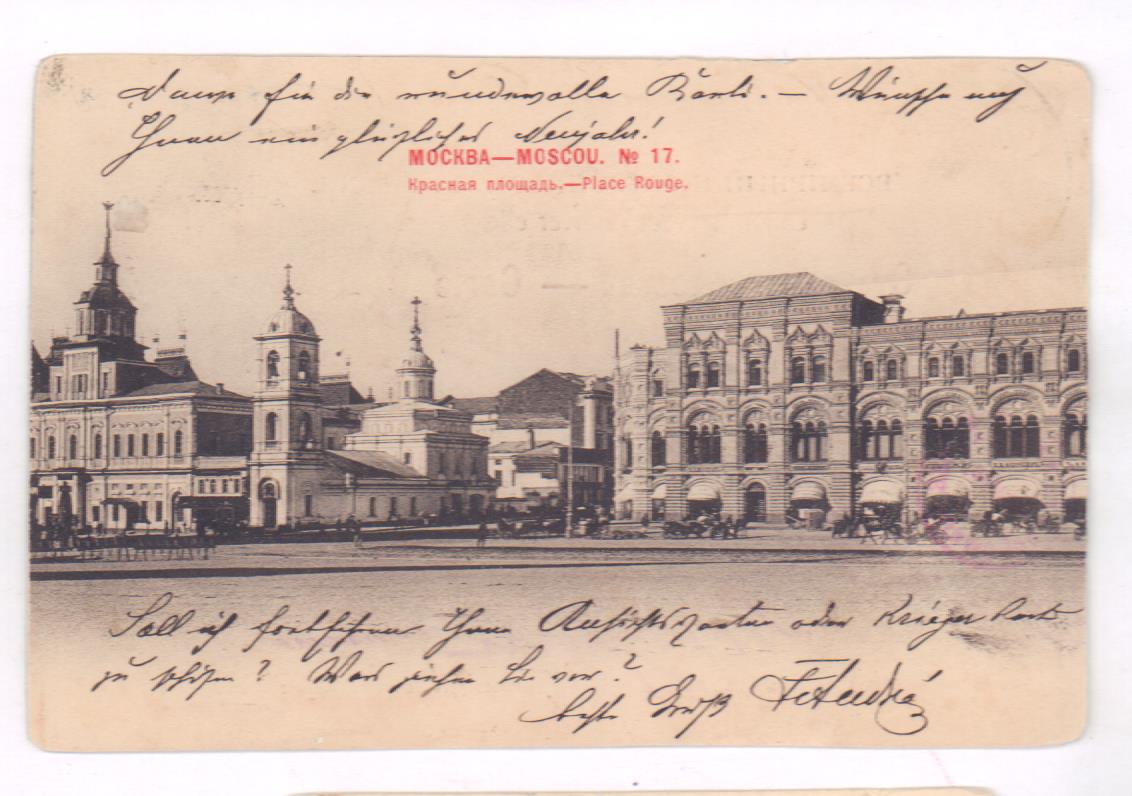 Danke für die wundervolle Karte. — Wünsche auch
Ihnen ein glückliches Neujahr!
МОСКВА—MOSCOU. № 17.
Красная площадь.—Place Rouge.
Soll ich fortfahren Ihnen Ansichtskarten oder Krieger
zu schicken? Was ziehen Sie vor?
beste Grüße